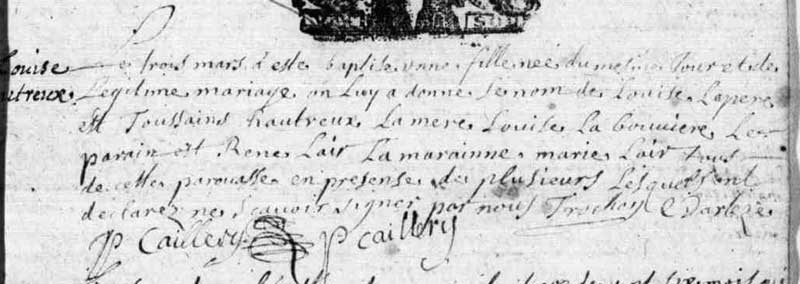 Louise
utreux
Le trois mars a este baptisé unne fille née du mesme Jour et de
Legitime mariage on Luy a donné Le nom de Louise Le pere
est Toussains hautreux La mere Louise La bouviere Le
parain est René Lair La marainne marie Lair tous
de cette parouasse en presense de plusieurs Lesquels ont
declarez ne scavoir signer par nous Trochon
P Caillery P Caillery